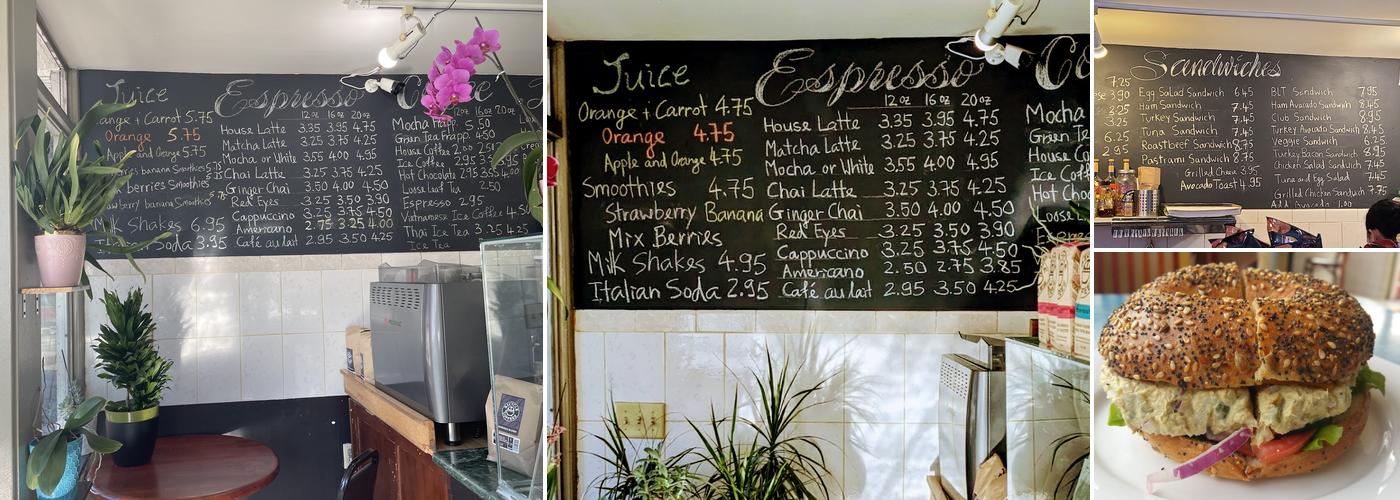 Juice
Orange + Carrot 5.75
Orange 5.75
Apple and Orange 5.75
berries banana Smoothies 5.75
berries Smoothies 5.75
banana Smoothies
Milk Shakes 6.95
Italian Soda 3.95
Espresso
12 oz 16 oz 20 oz
House Latte 3.35 3.95 4.75
Matcha Latte 3.25 3.75 4.25
Mocha or White 3.55 4.00 4.95
Chai Latte
Ginger Chai 3.50 4.00 4.50
Red Eyes 3.25 3.50 3.90
Cappuccino 3.25 3.75 4.50
Americano 2.75 3.25 4.00
Café au lait 2.95 3.50 4.25
12 oz 16 oz 20 oz
Mocha Frapp 5.50
Green Tea Frapp 4.50
House Coffee 2.00
Ice Coffee 2.95
Hot Chocolate 2.95
Loose Leaf Tea 2.50
Espresso 2.95
Vietnamese Ice Coffee 4.50
Thai Ice Tea
Ice Tea
Juice
Orange + Carrot 4.75
Orange 4.75
Apple and Orange 4.75
Smoothies 4.75
Strawberry Banana
Mix Berries
Milk Shakes 4.95
Italian Soda 2.95
Espresso
12 oz 16 oz 20 oz
House Latte 3.35 3.95 4.75
Matcha Latte 3.25 3.75 4.25
Mocha or White 3.55 4.00 4.95
Chai Latte 3.25 3.75 4.25
Ginger Chai 3.50 4.00 4.50
Red Eyes 3.25 3.50 3.90
Cappuccino 3.25 3.75 4.50
Americano 2.50 2.75 3.85
Café au lait 2.95 3.50 4.25
Co
Mocha
Green Te
House Co
Ice Coff
Hot Choc
Loose
Espresso
Sandwiches
7.25
3.90
2.95
Egg Salad Sandwich 6.45
Ham Sandwich 7.45
Turkey Sandwich 7.45
Tuna Sandwich 7.45
Roast beef Sandwich 8.75
Pastrami Sandwich 8.75
Grilled Cheese 3.95
Avocado Toast 4.95
BLT Sandwich 7.95
Ham Avocado Sandwich 8.45
Club Sandwich 8.95
Turkey Avocado Sandwich 8.45
Veggie Sandwich 6.25
Turkey Bacon Sandwich 8.95
Chicken Salad Sandwich 7.45
Tuna and Egg Salad 7.45
Grilled Chicken Sandwich 7.75
Add Avocado 1.00